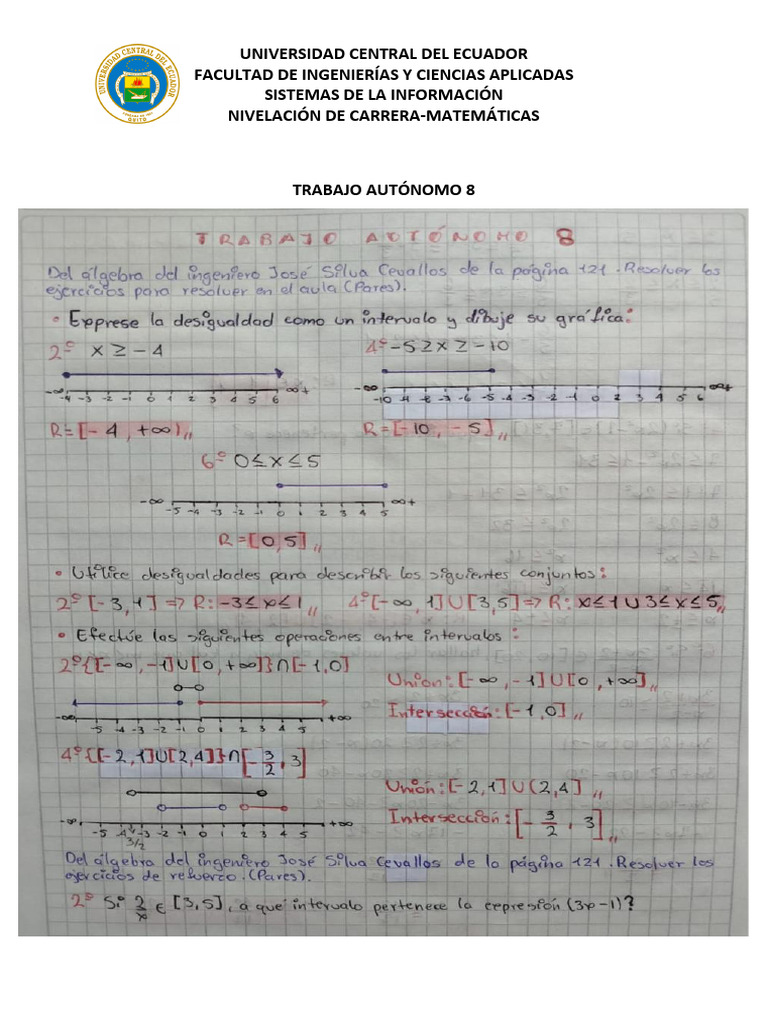 UNIVERSIDAD CENTRAL DEL ECUADOR
FACULTAD DE INGENIERÍAS Y CIENCIAS APLICADAS
SISTEMAS DE LA INFORMACIÓN
NIVELACIÓN DE CARRERA-MATEMÁTICAS
UNIVERSIDAD CENTRAL DEL ECUADOR
QUITO
TRABAJO AUTÓNOMO 8
TRABAJO AUTÓNOMO 8
Del álgebra del ingeniero José Silva Cevallos de la página 121. Resolver los
ejercicios para resolver en el aula (Pares).
• Expprese la desigualdad como un intervalo y dibuje su gráfica:
2º x ≥ -4 4º -5 ≥ x ≥ -10
-∞ -4 -3 -2 -1 0 1 2 3 4 5 6 ∞+ -∞ -10 -9 -8 -7 -6 -5 -4 -3 -2 -1 0 1 2 3 4 5 6 ∞+
R = [-4, +∞) ,, R = [-10, -5] ,,
6º 0 ≤ x ≤ 5
-∞ -5 -4 -3 -2 -1 0 1 2 3 4 5 ∞+
R = [0, 5] ,,
• Utilice desigualdades para describir los siguientes conjuntos:
2º [-3, 1] => R: -3 ≤ x ≤ 1 ,, 4º [-∞, 1] U [3, 5] => R: x ≤ 1 U 3 ≤ x ≤ 5 ,,
• Efectúe las siguientes operaciones entre intervalos:
2º {[-∞, -1] U [0, +∞]} ∩ [-1, 0]
Unión: [-∞, -1] U [0, +∞] ,,
-∞ -5 -4 -3 -2 -1 0 1 2 3 4 5 +∞
Intersección: [-1, 0] ,,
4º {[-2, 1] U [2, 4]} ∩ [-3/2, 3]
Unión: [-2, 1] U (2, 4] ,,
-∞ -5 -4 -3 -2 -1 0 1 2 3 4 5 +∞
3/2
Intersección: [-3/2, 3] ,,
Del álgebra del ingeniero José Silva Cevallos de la página 121. Resolver los
ejercicios de refuerzo. (Pares).
2º Si 2/x ∈ [3, 5], a qué intervalo pertenece la expresión (3x-1)?